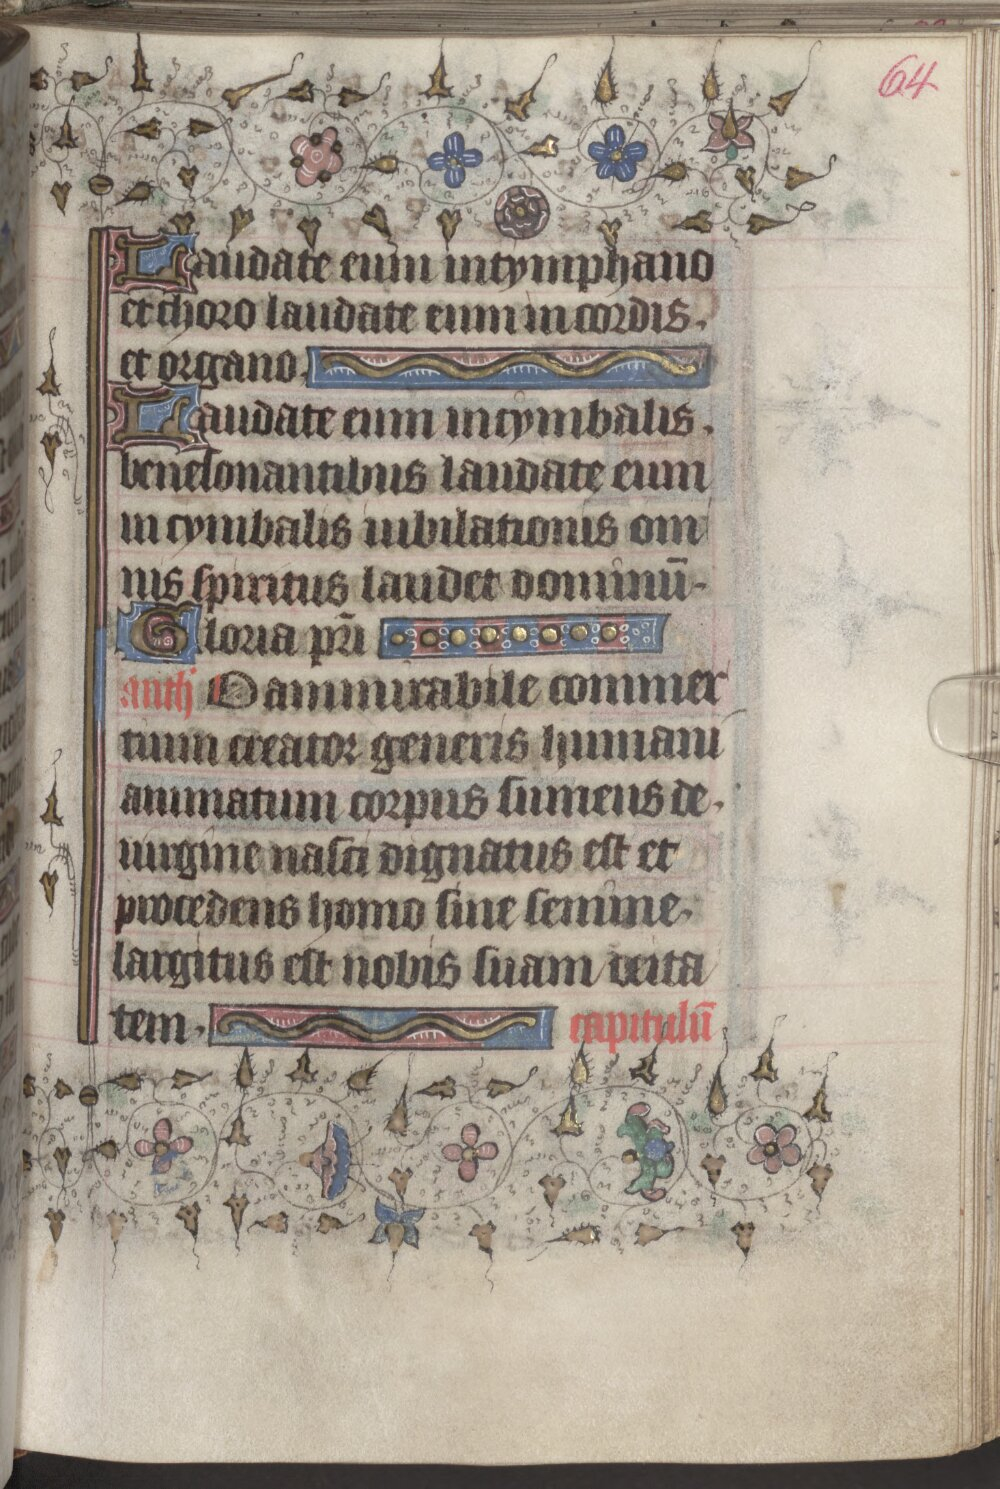 64
Laudate eum in tymphano
et choro laudate eum in cordis.
et organo.
Laudate eum in cymbalis.
benesonantibus laudate eum
in cymbalis iubilationis om
nis spiritus laudet dominū-
Gloria pr̄i
anth O ammirabile commer
tium creator generis humani
animatum corpus sumens de.
uirgine nasci dignatus est et
procedens homo sine semine.
largitus est nobis suam deita
tem. capitulū